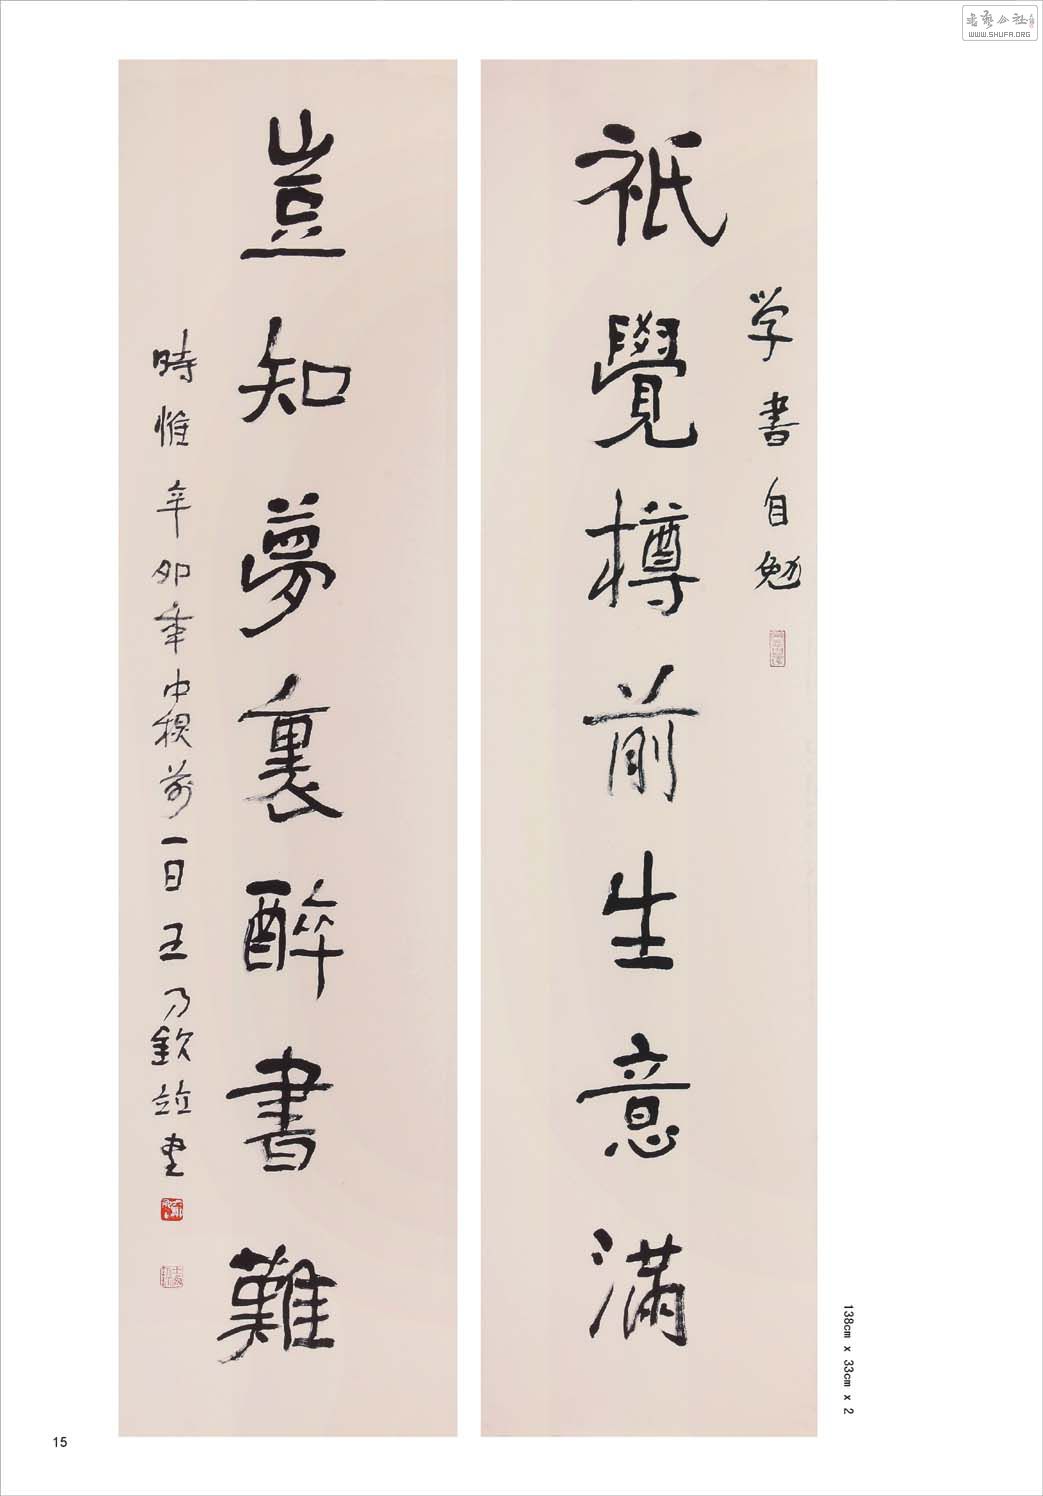 祇覺樽前生意滿
学書自勉
豈知夢裏醉書難
時惟辛卯年中秋前一日王乃欽並书
138cm x 33cm x 2
15
书艺公社
WWW.SHUFA.ORG